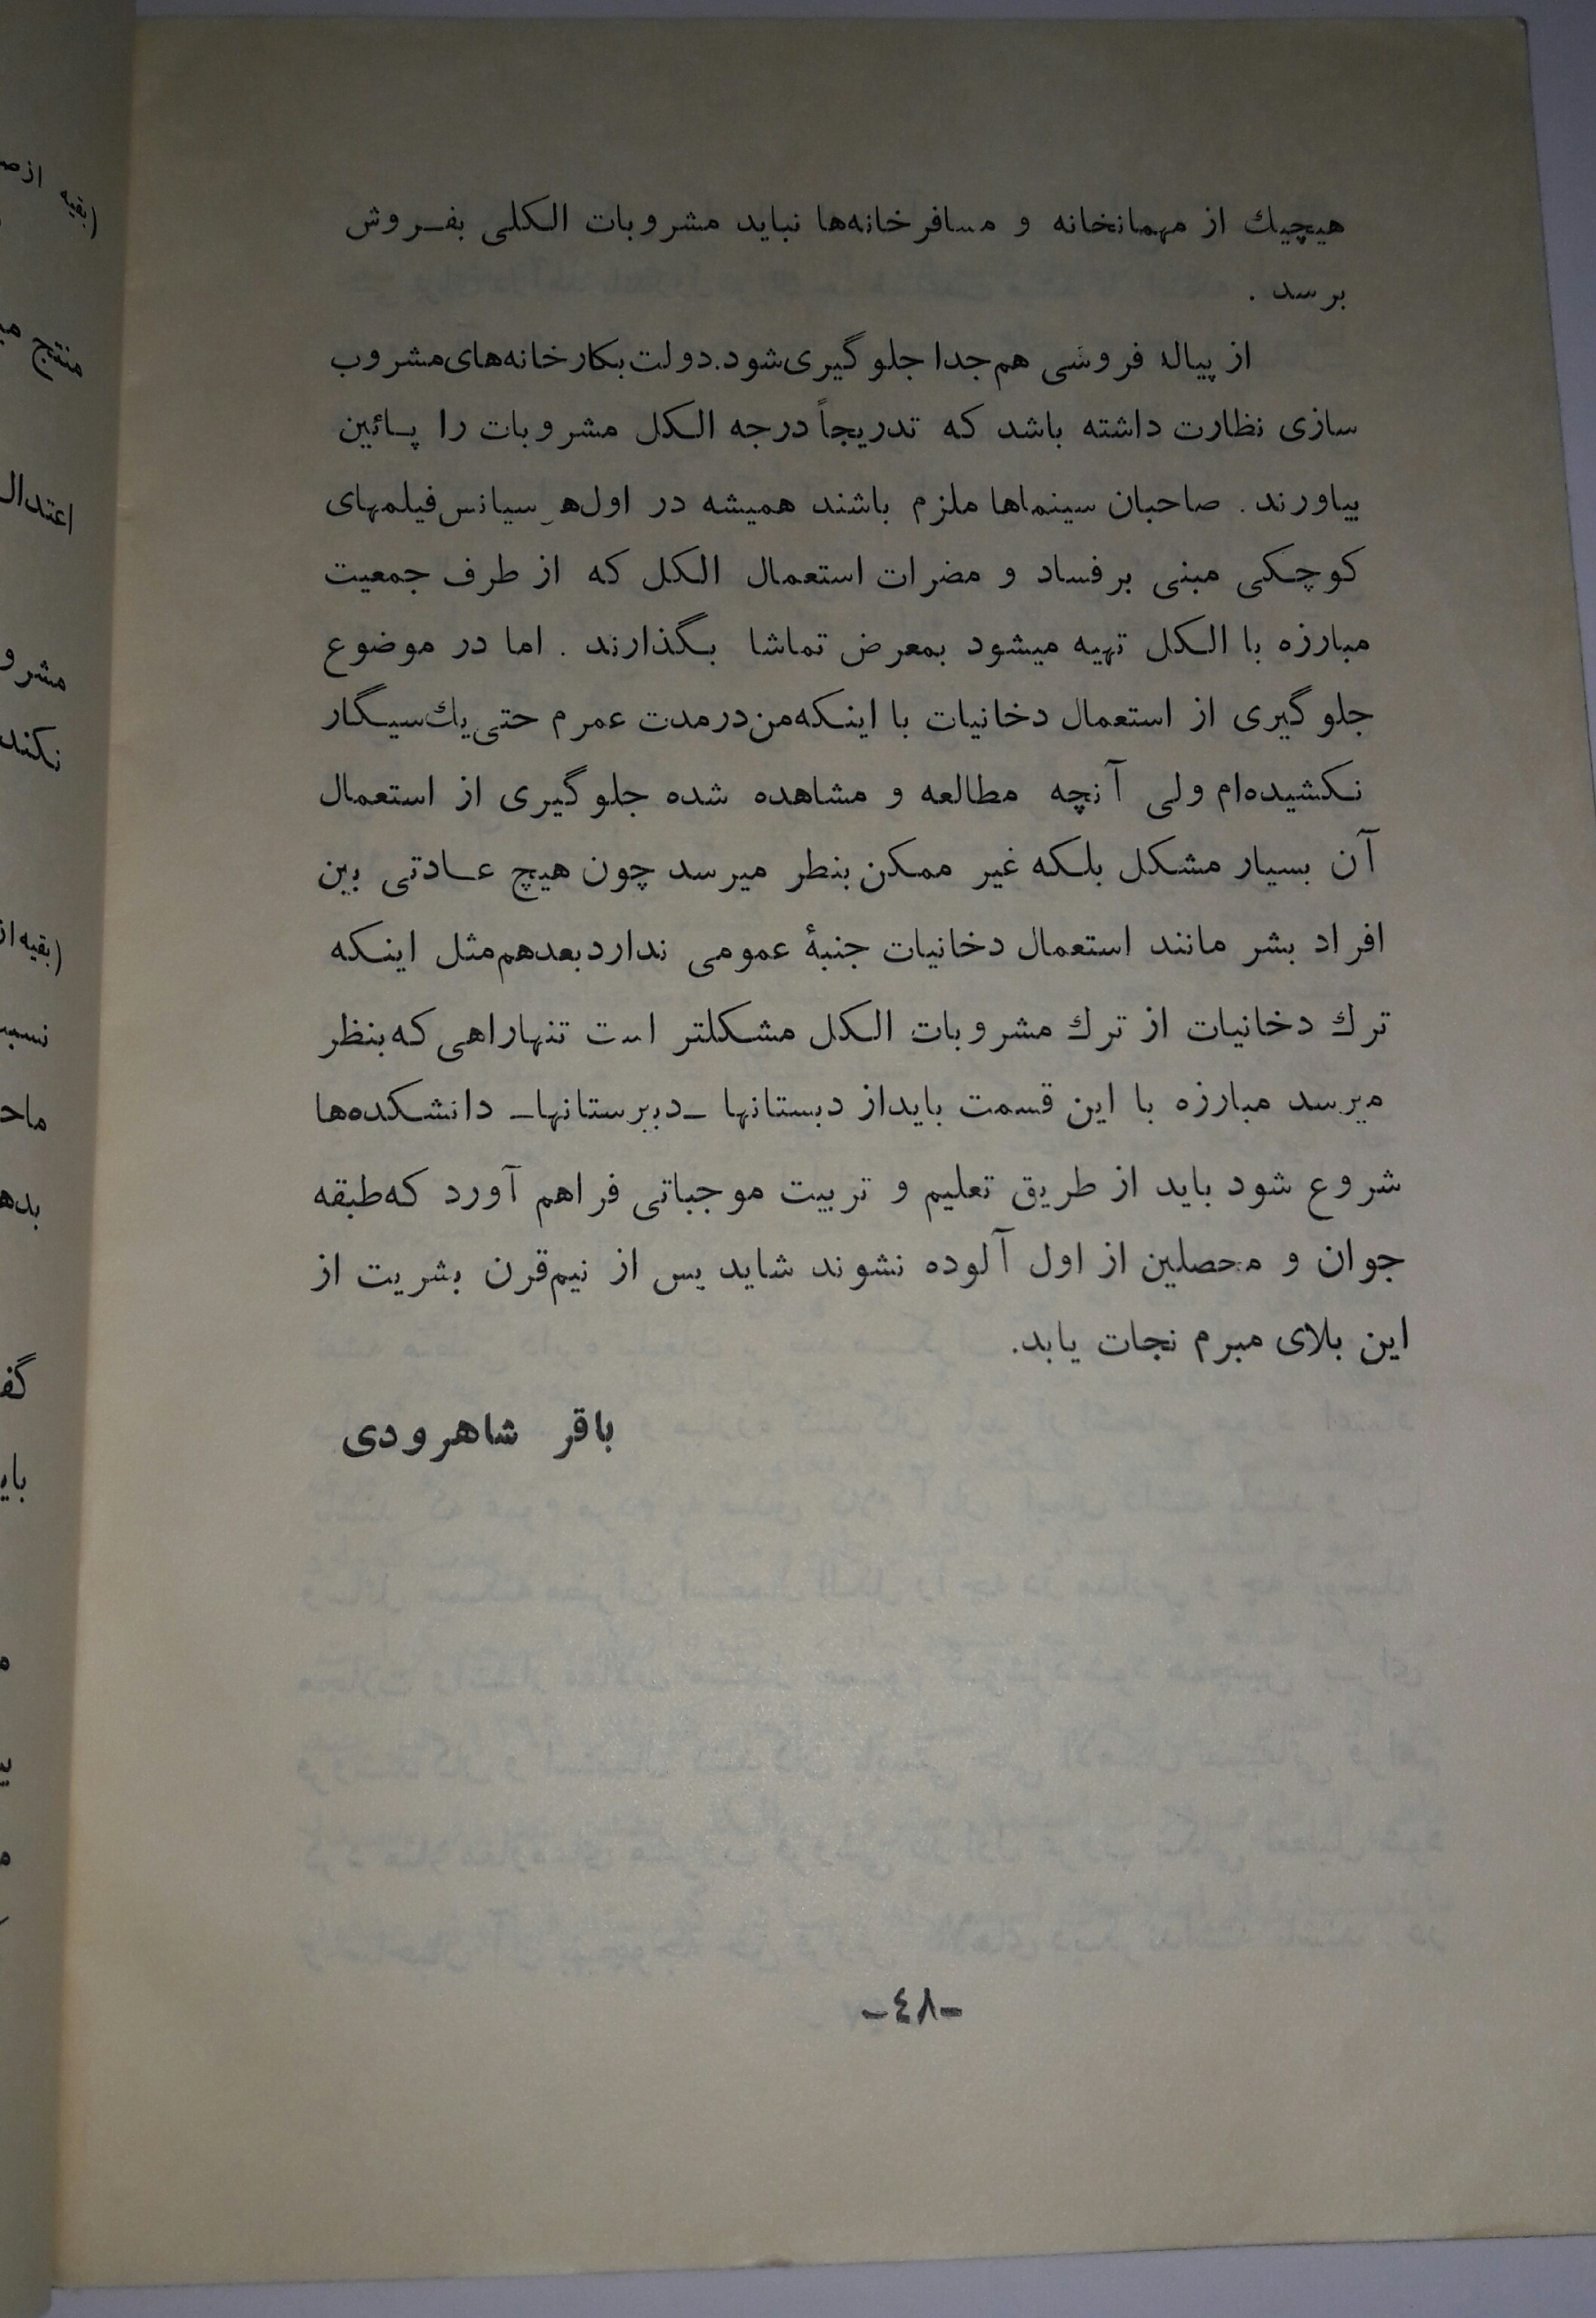 هیچیك از مهمانخانه و مسافرخانه‌ها نباید مشروبات الکلی بفروش
برسد .
از پیاله فروشی هم جدا جلوگیری شود. دولت بکارخانه‌های مشروب
سازی نظارت داشته باشد که تدریجاً درجه الکل مشروبات را پائین
بیاورند . صاحبان سینماها ملزم باشند همیشه در اول هر سیانس فیلمهای
کوچکی مبنی بر فساد و مضرات استعمال الکل که از طرف جمعیت
مبارزه با الکل تهیه میشود بمعرض تماشا بگذارند . اما در موضوع
جلوگیری از استعمال دخانیات با اینکه من در مدت عمرم حتی یك سیگار
نکشیده‌ام ولی آنچه مطالعه و مشاهده شده جلوگیری از استعمال
آن بسیار مشکل بلکه غیر ممکن بنطر میرسد چون هیچ عادتی بین
افراد بشر مانند استعمال دخانیات جنبهٔ عمومی ندارد بعد هم مثل اینکه
ترك دخانیات از ترك مشروبات الکل مشکلتر است تنها راهی که بنظر
میرسد مبارزه با این قسمت باید از دبستانها - دبیرستانها - دانشکده‌ها
شروع شود باید از طریق تعلیم و تربیت موجباتی فراهم آورد که طبقه
جوان و محصلین از اول آلوده نشوند شاید پس از نیم قرن بشریت از
این بلای مبرم نجات یابد.
باقر شاهرودی
-٤٨-
(بقیه
منتج
اعتدال
نکند
(بقیه از